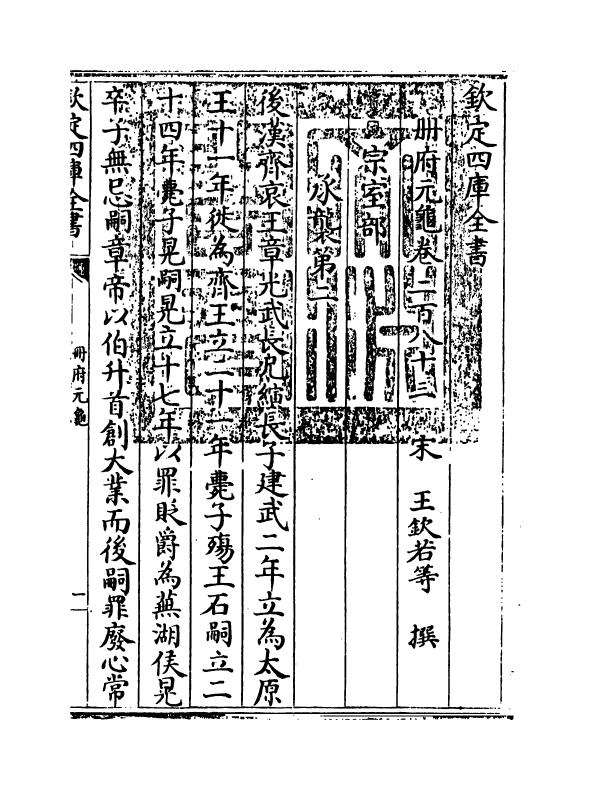 欽定四庫全書
冊府元龜卷二百八十三　宋　王欽若等　撰
宗室部
承襲第二
後漢齊哀王章光武長兄縯長子建武二年立為太原
王十一年徙為齊王立二十一年薨子殤王石嗣立二
十四年薨子晃嗣晃立十七年以罪貶爵為蕪湖侯晃
卒子無忌嗣章帝以伯升首創大業而後嗣罪廢心常
欽定四庫全書
冊府元龜